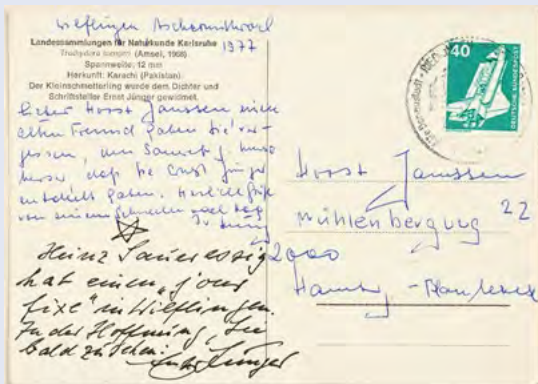 Wilflingen Aschermittwoch
1977
Landessammlungen für Naturkunde Karlsruhe
(Amsel, 1968)
Spannweite: 12 mm
Herkunft: Karachi (Pakistan)
Der Kleinschmetterling wurde dem Dichter und
Schriftsteller Ernst Jünger gewidmet.
Lieber Horst Janssen
alten Freund haben Sie ver-
gessen, den
daß Sie Ernst Jünger
entdeckt haben. Herzliche Grüße
von
Heinz Saueressig
hat einen „jour
fixe" in Wilflingen.
In der Hoffnung, Sie
bald zu sehen:
Ernst Jünger
40
DEUTSCHE BUNDESPOST
Horst Janssen
Mühlenbergweg 22
2000
Hamburg - Blankenese